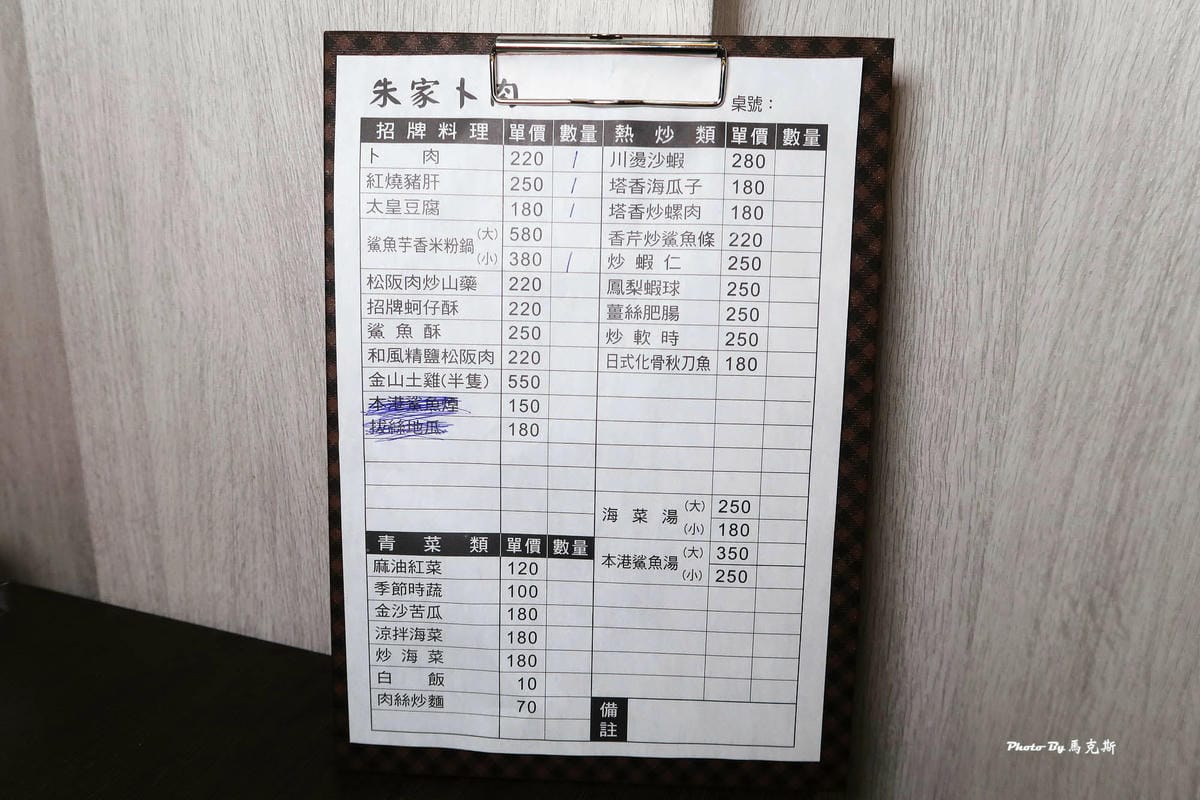 朱家卜肉
桌號：
招牌料理 單價 數量
卜肉 220 /
紅燒豬肝 250 /
太皇豆腐 180 /
鯊魚芋香米粉鍋 (大) 580
(小) 380 /
松阪肉炒山藥 220
招牌蚵仔酥 220
鯊魚酥 250
和風精鹽松阪肉 220
金山土雞(半隻) 550
本港鯊魚煙 150
拔絲地瓜 180
青菜類 單價 數量
麻油紅菜 120
季節時蔬 100
金沙苦瓜 180
涼拌海菜 180
炒海菜 180
白飯 10
肉絲炒麵 70
熱炒類 單價 數量
川燙沙蝦 280
塔香海瓜子 180
塔香炒螺肉 180
香芹炒鯊魚條 220
炒蝦仁 250
鳳梨蝦球 250
薑絲肥腸 250
炒軟時 250
日式化骨秋刀魚 180
海菜湯 (大) 250
(小) 180
本港鯊魚湯 (大) 350
(小) 250
備註
Photo By 馬克斯